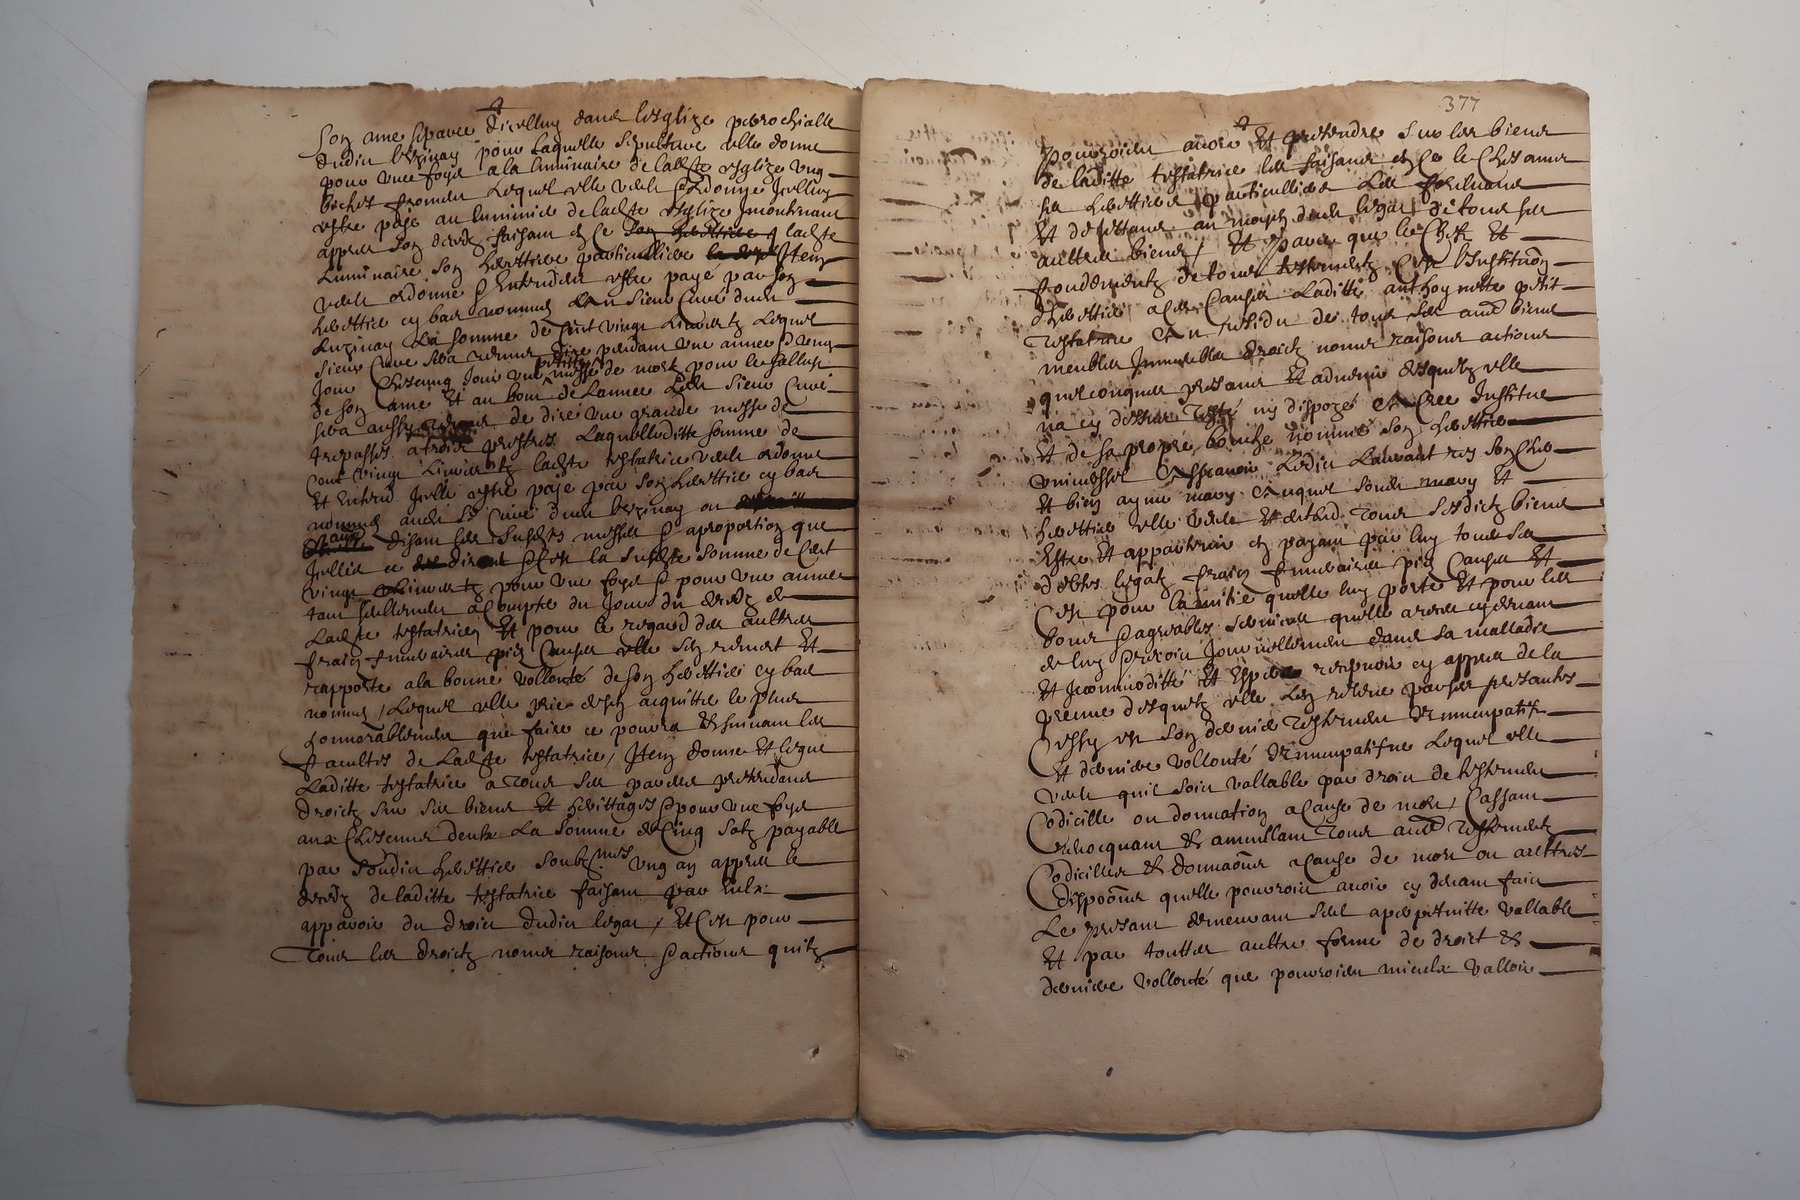 son ame separee dicelluy dans lesglize parrochialle
dudit luzinay pour laquelle sepulture elle donne
pour une foys a la luminaire de ladte esglize ung
bichet froment lequel elle veult & ordonne icelluy
estre paye au luminier de ladte esglize incontinant
appres son deceds faisant en ce son heritiere ladte
luminaire son heritiere particulliere Item
veult ordonne & entenden estre paye par son
heritier cy bas nommé au sieur curé dudit
luzinay la somme de cent vingt livres tz lequel
sieur curé sera tenu dire pendant une annee dung
jour chascung jour une petitte messe de mort pour le sallut
de son ame et au bout de lannee ledit sieur curé
sera aussy tenu de dire une grande messe de
trepasses a trois prestres laquelleditte somme de
cent vingt livres tz ladte testatrice veult ordonne
et entend icelle estre paje par son heritier cy bas
nommé audit sr curé dudit luzinay ou
disant les susdtes messes & a proportion que
icelles ce diront & cest la susdte somme de cent
vingt livres tz pour une foys & pour une annee
tant seullement a compter du jour du deceds de
ladte testatrice et pour le regard des aultres
fraiz funeraires piez causes elle sen remet et
rapporte a la bonne vollonté de son heritier cy bas
nommé / lequel elle prie desen acquitter le plus
honnorablement que faire ce pourra & suivant les
facultes de ladte testatrice / Item donne et legue
laditte testatrice a tous ses parens pretendans
droictz sur ses biens et heritages & pour une foys
aux chescung deulx la somme de cinq solz payable
par sondit heritier soubznomé ung an appres le
deceds de laditte testatrice faisant par eulx
apparoir du droict dudit legat / Et cest pour
tous les droictz noms raisons & actions quilz
377
pourroient avoir et pretendre sur les biens
de laditte testatrice les faisant en ce le chescunne
ses heritiers particulliers les
et desjettant au moyen dudit legat de tous ses
aultres biens / Et parce que le chef et
fondement de tous testamentz cest linstitution
dheritier a ces causes laditte anthoynette petit
testatrice au residu de tous ses aues biens
meubles immeubles droictz noms raisons actions
quelconques presans et advenir desquelz elle
na cy dessus testé ny disposé a cree institue
et de sa propre bouche nommé son heritier
universel assavoir ledit laurant rey son cher
et bien aymé mary auquel sondit mary et
heritier elle veult et entend tous sesdictz biens
estre et appartenir en payant par luy tous ses
debtes legatz fraiz funeraires piez causes et
cest pour lamitié quelle luy porte et pour les
bons & agreables services quelle a receu cy devant
de luy & recoit journellement dans sa malladie
et incommoditté et espere recepvoir cy appres de la
preuve desquelz elle len releve par ses presantes
cessy est son dernier testement & nuncupatif
et derniere vollonté & nuncupatifve lequel elle
veult quil soit vallable par droit de testement
codicille ou donnation a cause de mort / cassant
revocquant & annullant tous aues testementz
codicilles & donnaons a cause de mort ou aultres
dispoons quelle pourroit avoir cy devant fait
le presant demeurant seul a perpetuitte vallable
et par touttes aultre forme de droict &
derniere vollonté que pourroient mieulx valloir